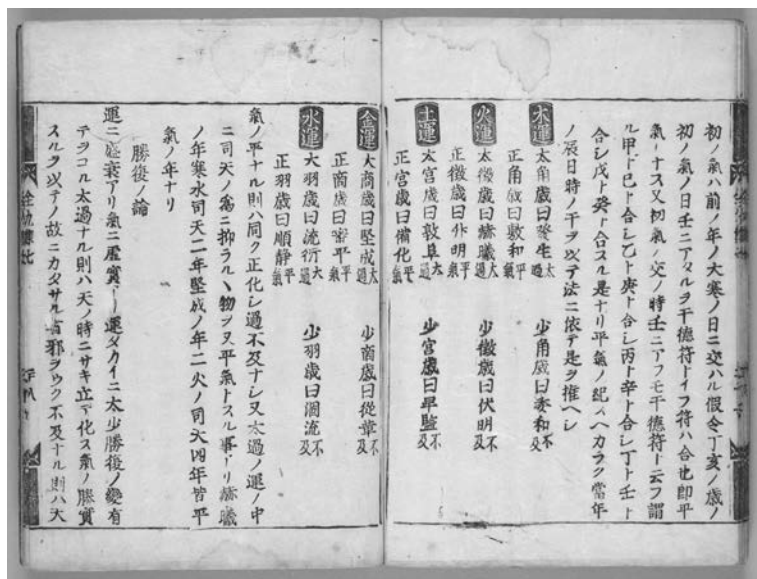 初ノ氣ハ前ノ年ノ大寒ノ日ニ交ハル假令丁亥ノ歳ノ
初ノ氣ノ日壬ニアタルヲ干德符トイフ符ハ合也即平
氣トナス又初氣ノ交ノ時壬ニアフモ干德符ト云フ謂
ル甲ト巳ト合シ乙ト庚ト合シ丙ト辛ト合シ丁ト壬ト
合シ戊ト癸ト合スル是ナリ平氣ノ紀スヘカラク當年
ノ辰日時ノ干ヲ以テ法ニ依テ是ヲ推ヘシ
木運
太角歳曰發生太過
少角歳曰委和不及
正角歳曰敷和平氣
火運
太徴歳曰赫曦太過
少徴歳曰伏明不及
正徴歳曰升明平氣
土運
太宮歳曰敦阜太過
少宮歳曰卑監不及
正宮歳曰備化平氣
金運
太商歳曰堅成太過
少商歳曰從革不及
正商歳曰審平平氣
水運
太羽歳曰流衍太過
少羽歳曰涸流不及
正羽歳曰順靜平氣
氣ノ平ナル則ハ同ク正化シ過不及ナシ又太過ノ運ノ中
ニ司天ノ爲ニ抑ラルヽ物ヲ又平氣トスル事アリ赫曦
ノ年寒水司天二年堅成ノ年二火ノ司天四年皆平
氣ノ年ナリ
勝復ノ論
運ニ盛衰アリ氣ニ虛實アリ運タカイニ太少勝復ノ變有
テヲコル太過ナル則ハ天ノ時ニサキ立テ化ス氣ノ勝實
スルヲ以テノ故ニカタサル者邪ヲウク不及ナル則ハ天